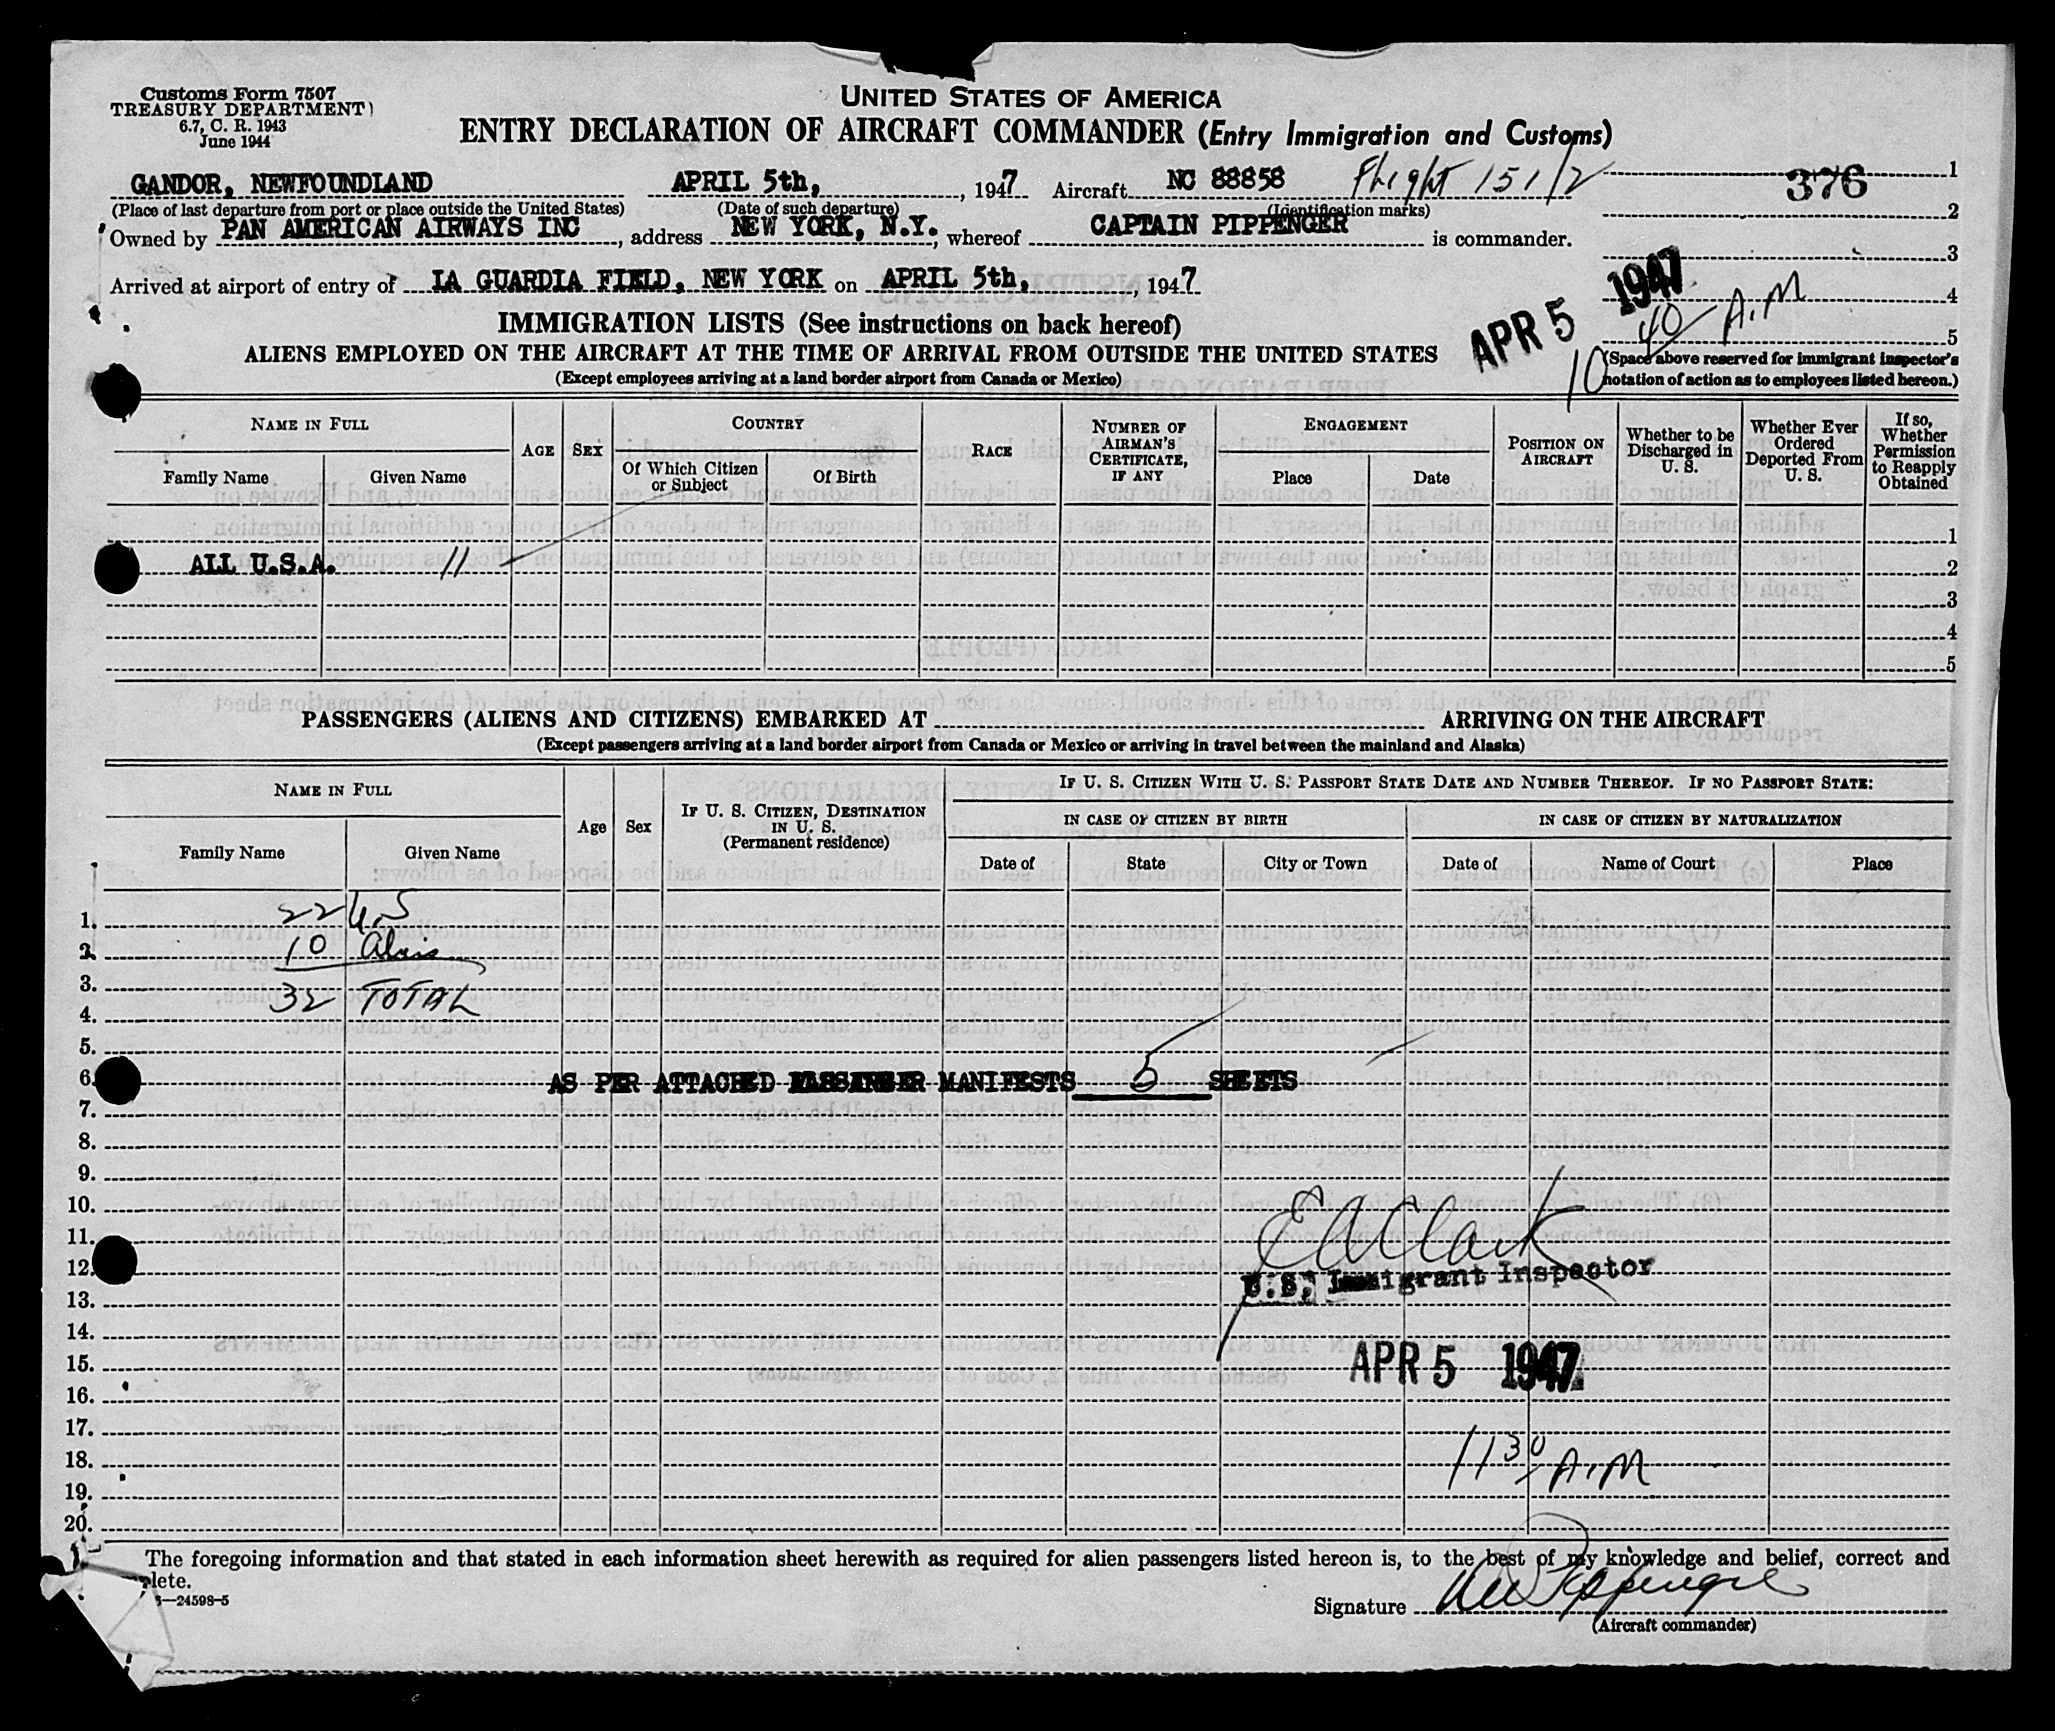 Customs Form 7507
TREASURY DEPARTMENT
6.7, C. R. 1943
June 1944
UNITED STATES OF AMERICA
ENTRY DECLARATION OF AIRCRAFT COMMANDER (Entry Immigration and Customs)
GANDOR, NEWFOUNDLAND APRIL 5th, , 1947 Aircraft NC 88858 Flight 151/2
376 1
(Place of last departure from port or place outside the United States) (Date of such departure) (Identification marks)
2
Owned by PAN AMERICAN AIRWAYS INC , address NEW YORK, N.Y. , whereof CAPTAIN PIPPENGER is commander.
3
Arrived at airport of entry of LA GUARDIA FIELD, NEW YORK on APRIL 5th, , 1947
APR 5 1947
4
10 40 A.M
5
IMMIGRATION LISTS (See instructions on back hereof)
ALIENS EMPLOYED ON THE AIRCRAFT AT THE TIME OF ARRIVAL FROM OUTSIDE THE UNITED STATES
(Space above reserved for immigrant inspector's
notation of action as to employees listed hereon.)
(Except employees arriving at a land border airport from Canada or Mexico)
NAME IN FULL
Family Name Given Name
AGE SEX
COUNTRY
Of Which Citizen or Subject Of Birth
RACE
NUMBER OF AIRMAN'S CERTIFICATE, IF ANY
ENGAGEMENT
Place Date
POSITION ON AIRCRAFT
Whether to be Discharged in U. S.
Whether Ever Ordered Deported From U. S.
If so, Whether Permission to Reapply Obtained
1
ALL U.S.A. 11 2
3
4
5
PASSENGERS (ALIENS AND CITIZENS) EMBARKED AT ARRIVING ON THE AIRCRAFT
(Except passengers arriving at a land border airport from Canada or Mexico or arriving in travel between the mainland and Alaska)
NAME IN FULL
Family Name Given Name
Age Sex
IF U. S. CITIZEN, DESTINATION IN U. S. (Permanent residence)
IF U. S. CITIZEN WITH U. S. PASSPORT STATE DATE AND NUMBER THEREOF. IF NO PASSPORT STATE:
IN CASE OF CITIZEN BY BIRTH IN CASE OF CITIZEN BY NATURALIZATION
Date of State City or Town Date of Name of Court Place
1. 22 U.S
2. 10
3. 32 TOTAL
4.
5.
6. AS PER ATTACHED PASSENGER MANIFESTS 5 SHEETS
7.
8.
9.
10.
11. E A Clark
12. U.S. Immigrant Inspector
13.
14.
15. APR 5 1947
16.
17.
18. 11 30 A.M
19.
20.
The foregoing information and that stated in each information sheet herewith as required for alien passengers listed hereon is, to the best of my knowledge and belief, correct and
plete.
—24598-5
Signature Pippenger
(Aircraft commander)